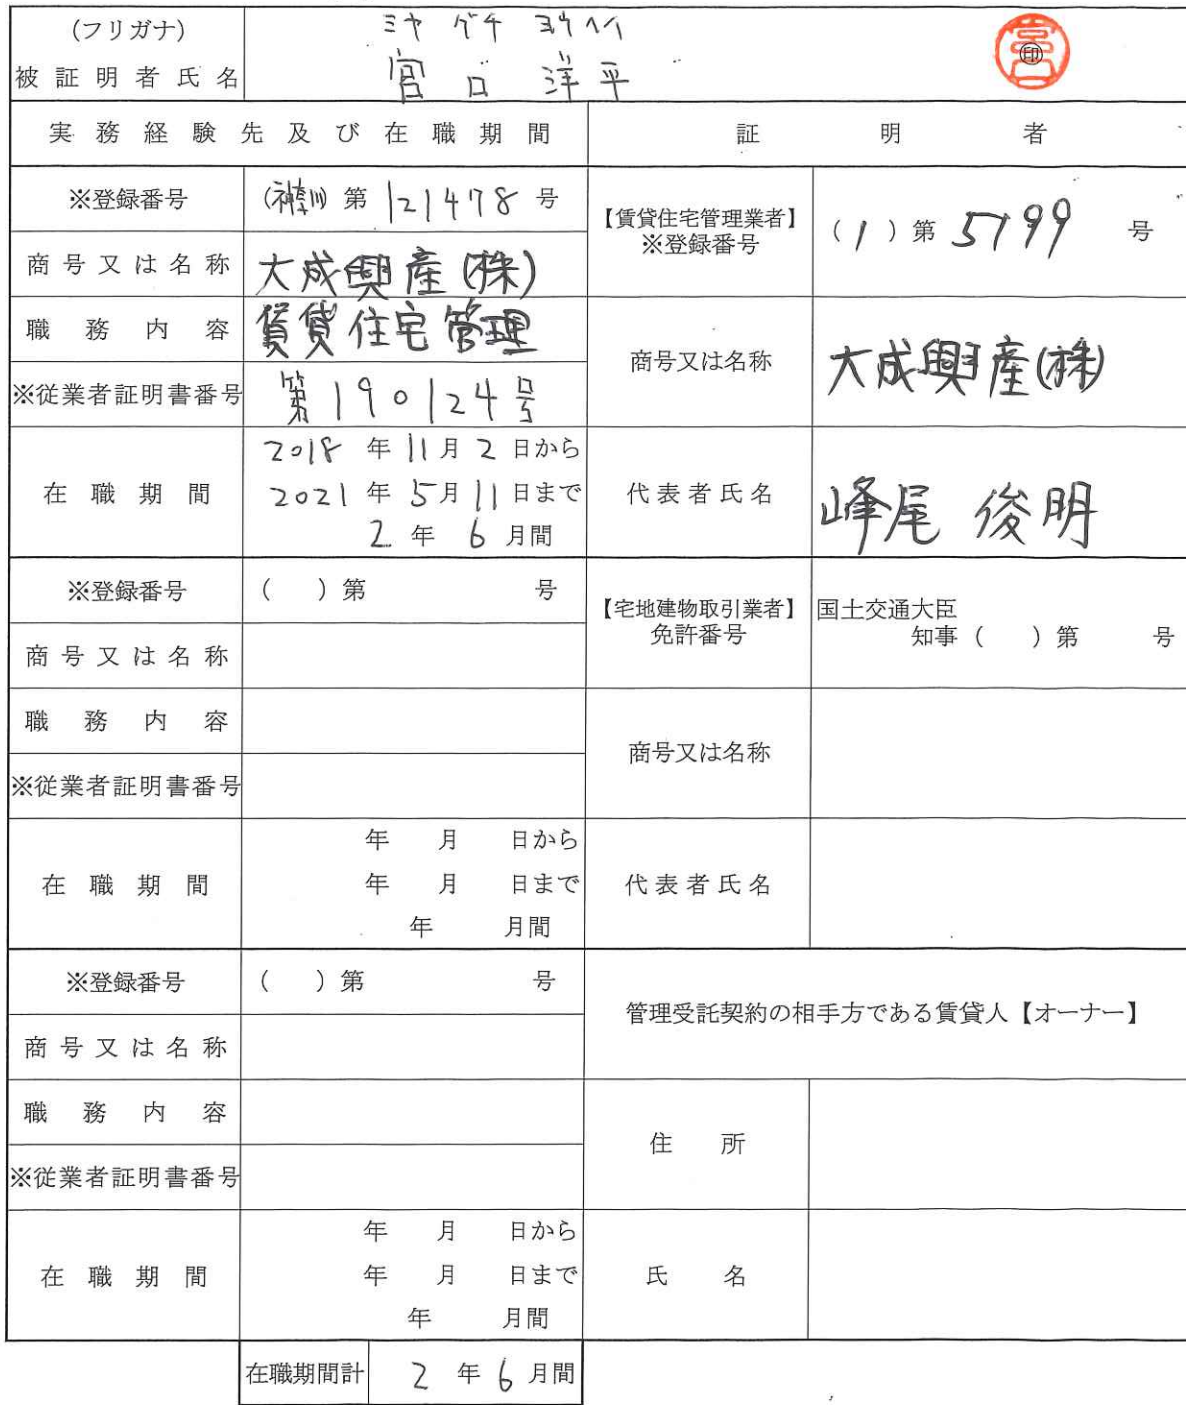 (フリガナ) ミヤ グチ ヨウヘイ
被証明者氏名 宮口 洋平 ㊞
実務経験先及び在職期間 証明者
※登録番号 (神奈川) 第 121478 号
【賃貸住宅管理業者】
※登録番号 (1) 第 5799 号
商号又は名称 大成興産(株)
職務内容 賃貸住宅管理
商号又は名称 大成興産(株)
※従業者証明書番号 第190124号
在職期間
2018 年 11 月 2 日から
2021 年 5 月 11 日まで
2 年 6 月間
代表者氏名 峰尾 俊明
※登録番号 ( ) 第 号
【宅地建物取引業者】
免許番号
国土交通大臣
知事 ( ) 第 号
商号又は名称
職務内容
商号又は名称
※従業者証明書番号
在職期間
年 月 日から
年 月 日まで
年 月間
代表者氏名
※登録番号 ( ) 第 号
管理受託契約の相手方である賃貸人【オーナー】
商号又は名称
職務内容
住所
※従業者証明書番号
在職期間
年 月 日から
年 月 日まで
年 月間
氏名
在職期間計 2 年 6 月間